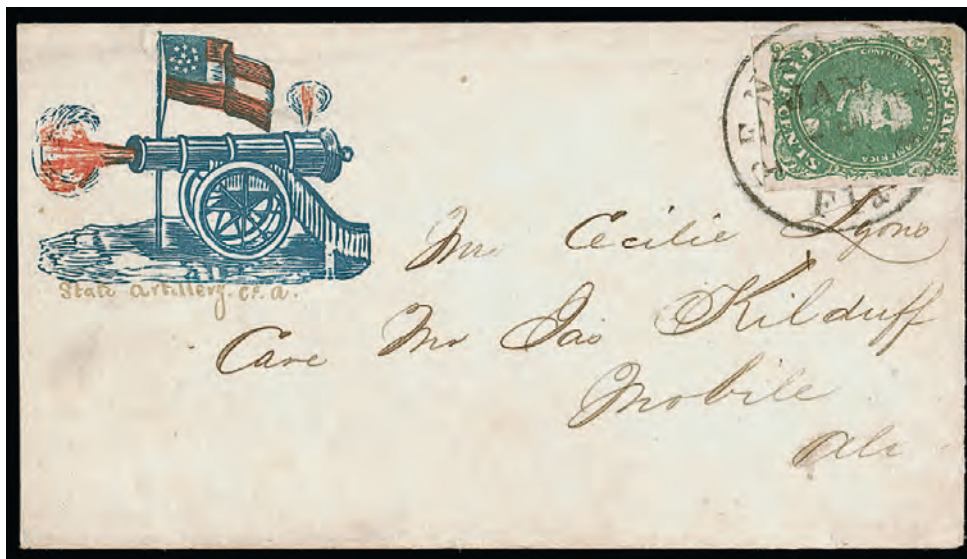 State Artillery. C.S.A.
JAN
Fla
POSTAGE
CONFEDERATE STATES OF AMERICA
Mr Cecilie Lyons
Care Mr Jas Kilduff
Mobile
Ala